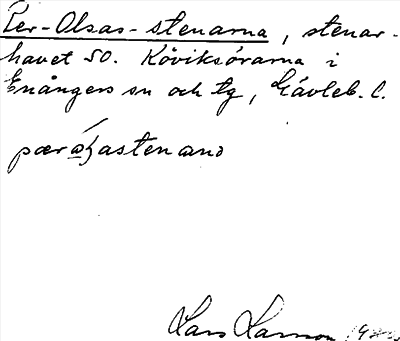 Per-Olsas-stenarna, stenar
havet SO. Köviksörarna i
Enångers sn och tg, Gävleb. l.
pær
Lars Larsson